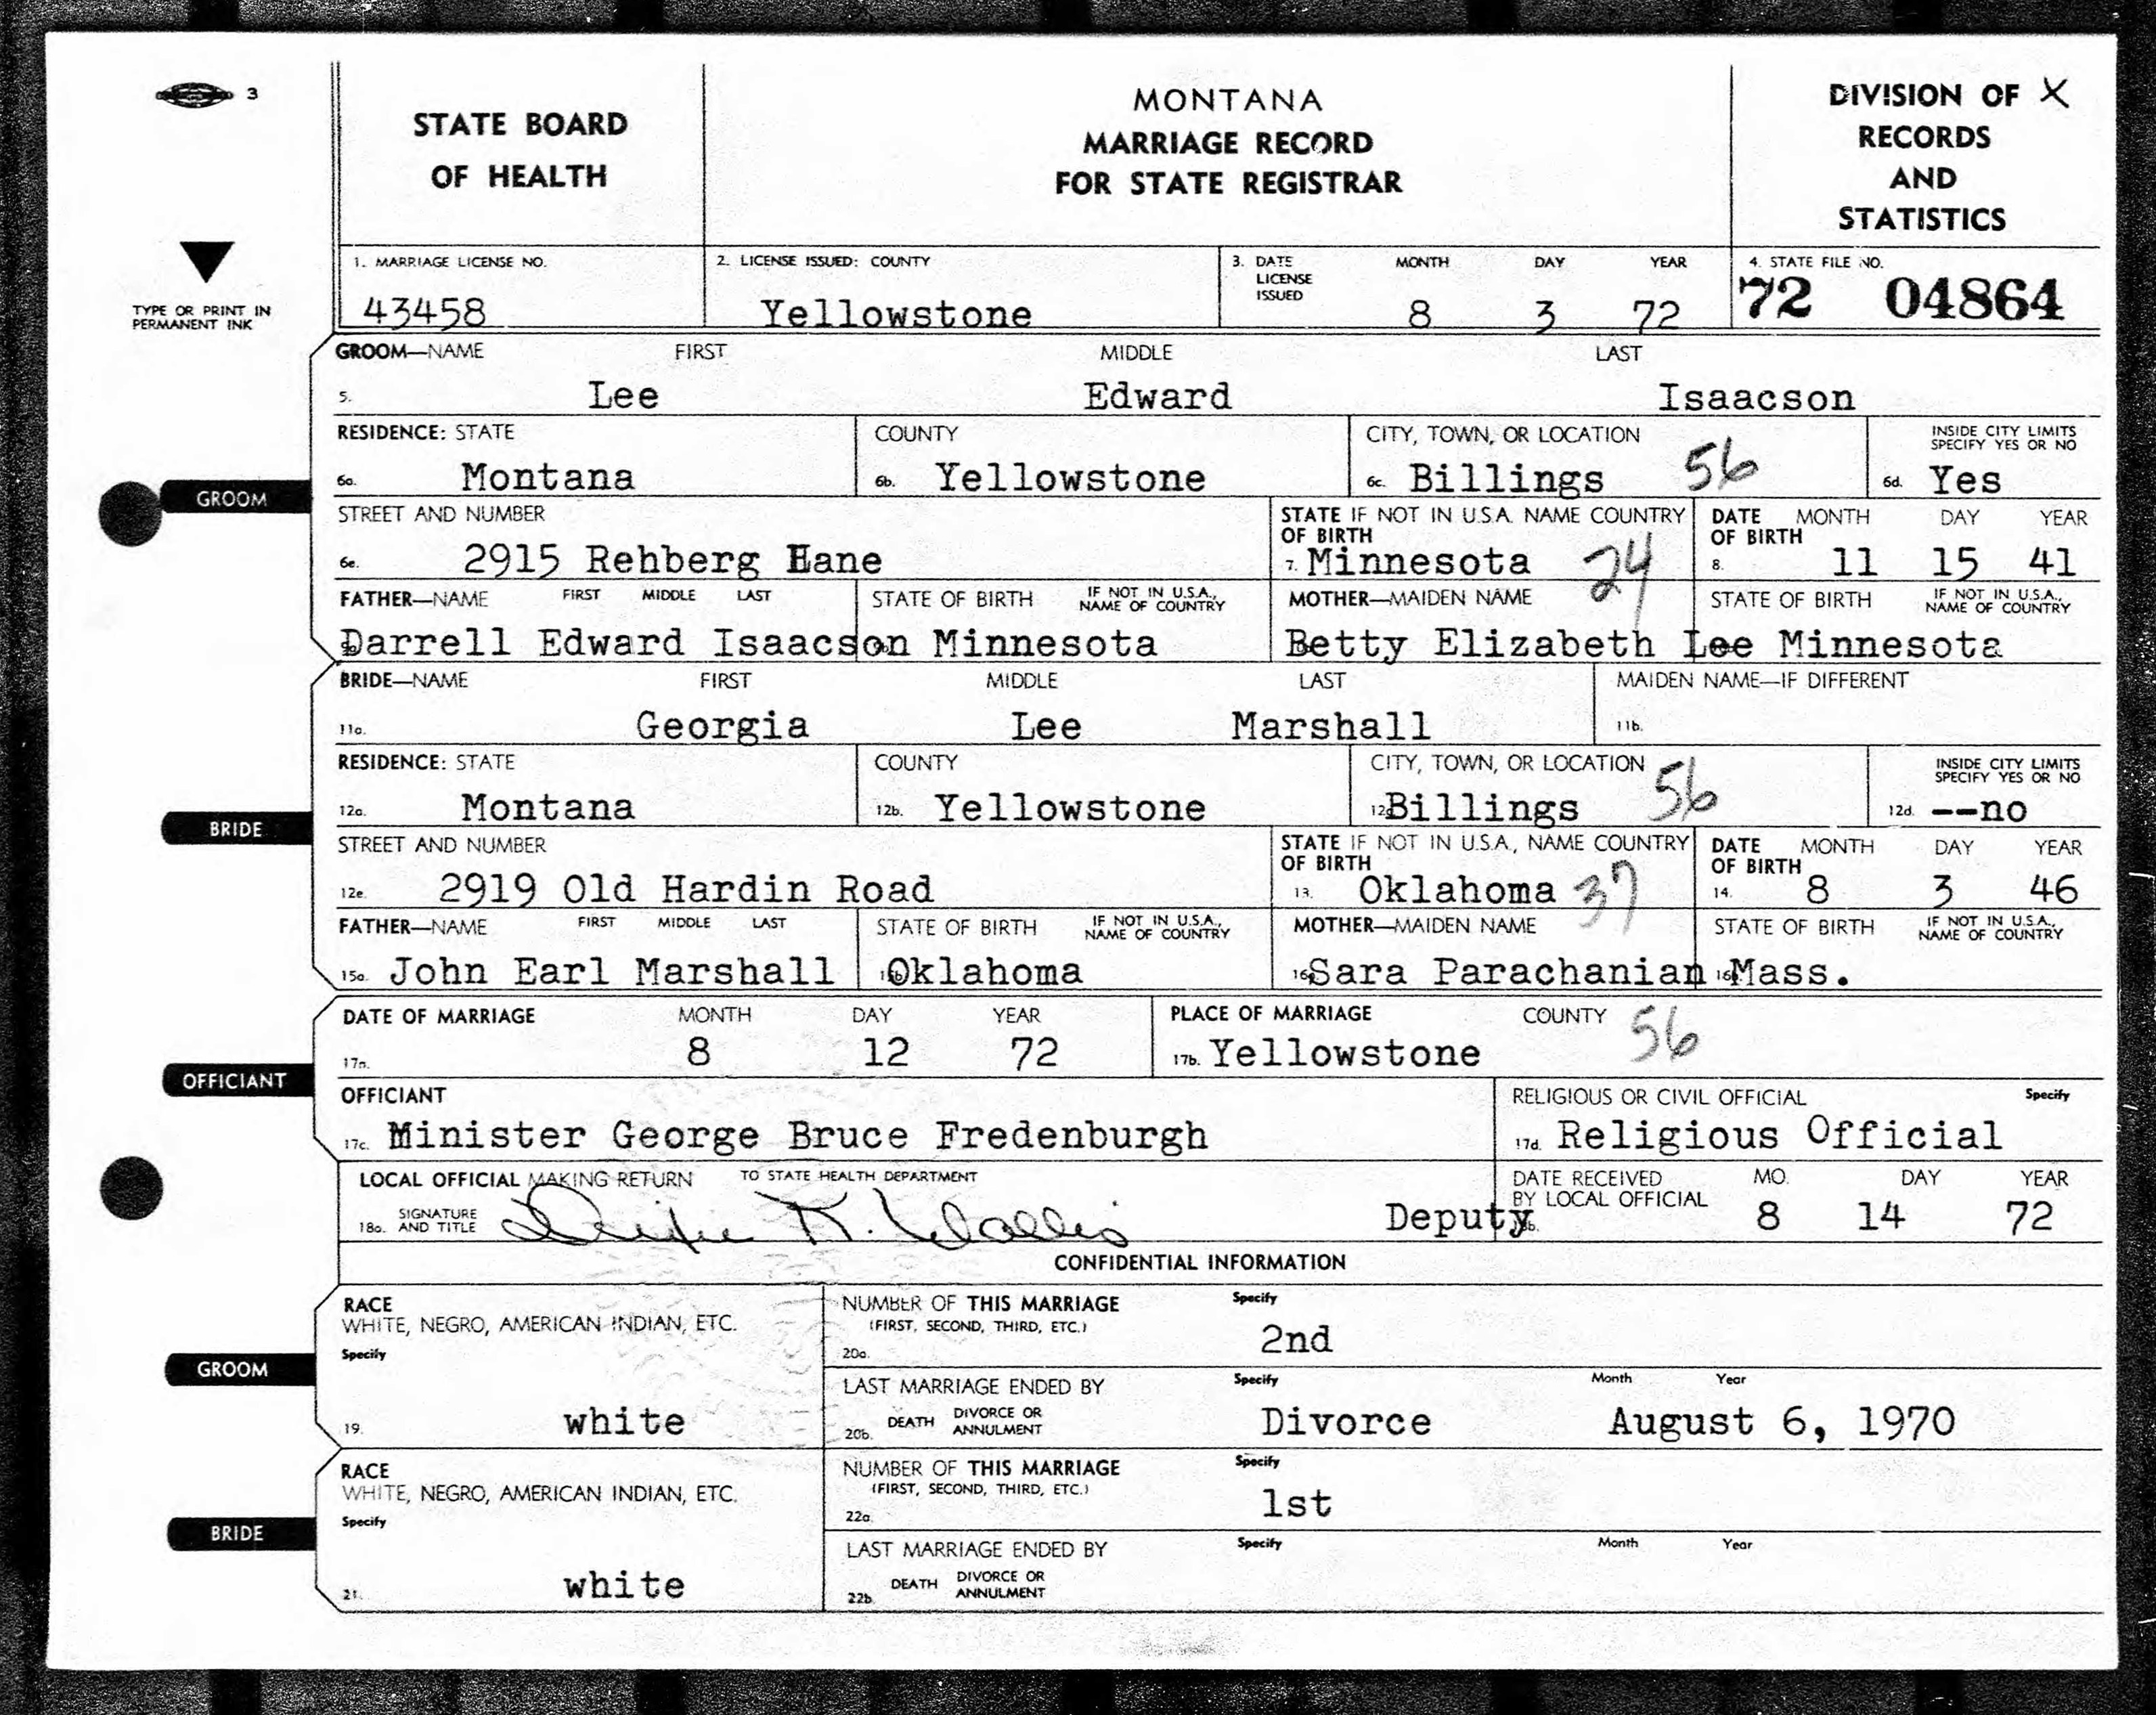 3
STATE BOARD
OF HEALTH
MONTANA
MARRIAGE RECORD
FOR STATE REGISTRAR
DIVISION OF X
RECORDS
AND
STATISTICS
TYPE OR PRINT IN
PERMANENT INK
1. MARRIAGE LICENSE NO. 43458
2. LICENSE ISSUED: COUNTY Yellowstone
3. DATE LICENSE ISSUED MONTH 8 DAY 3 YEAR 72
4. STATE FILE NO. 72 04864
GROOM
GROOM—NAME FIRST MIDDLE LAST
5. Lee Edward Isaacson
RESIDENCE: STATE COUNTY CITY, TOWN, OR LOCATION INSIDE CITY LIMITS SPECIFY YES OR NO
6a. Montana 6b. Yellowstone 6c. Billings 56 6d. Yes
STREET AND NUMBER STATE IF NOT IN U.S.A. NAME COUNTRY OF BIRTH DATE OF BIRTH MONTH DAY YEAR
6e. 2915 Rehberg Lane 7. Minnesota 24 8. 11 15 41
FATHER—NAME FIRST MIDDLE LAST STATE OF BIRTH IF NOT IN U.S.A., NAME OF COUNTRY MOTHER—MAIDEN NAME STATE OF BIRTH IF NOT IN U.S.A., NAME OF COUNTRY
Darrell Edward Isaacson Minnesota Betty Elizabeth Lee Minnesota
BRIDE
BRIDE—NAME FIRST MIDDLE LAST MAIDEN NAME—IF DIFFERENT
11a. Georgia Lee Marshall 11b.
RESIDENCE: STATE COUNTY CITY, TOWN, OR LOCATION INSIDE CITY LIMITS SPECIFY YES OR NO
12a. Montana 12b. Yellowstone 12c. Billings 56 12d. --no
STREET AND NUMBER STATE IF NOT IN U.S.A., NAME COUNTRY OF BIRTH DATE OF BIRTH MONTH DAY YEAR
12e. 2919 Old Hardin Road 13. Oklahoma 37 14. 8 3 46
FATHER—NAME FIRST MIDDLE LAST STATE OF BIRTH IF NOT IN U.S.A., NAME OF COUNTRY MOTHER—MAIDEN NAME STATE OF BIRTH IF NOT IN U.S.A., NAME OF COUNTRY
15a. John Earl Marshall 15b. Oklahoma 16a. Sara Parachanian 16b. Mass.
OFFICIANT
DATE OF MARRIAGE MONTH DAY YEAR PLACE OF MARRIAGE COUNTY
17a. 8 12 72 17b. Yellowstone 56
OFFICIANT RELIGIOUS OR CIVIL OFFICIAL Specify
17c. Minister George Bruce Fredenburgh 17d. Religious Official
LOCAL OFFICIAL MAKING RETURN TO STATE HEALTH DEPARTMENT DATE RECEIVED BY LOCAL OFFICIAL MO. DAY YEAR
18a. SIGNATURE AND TITLE K. Wallis Deputy 8 14 72
CONFIDENTIAL INFORMATION
GROOM
RACE
WHITE, NEGRO, AMERICAN INDIAN, ETC.
Specify
19. white
NUMBER OF THIS MARRIAGE Specify
(FIRST, SECOND, THIRD, ETC.)
20a. 2nd
LAST MARRIAGE ENDED BY Specify Month Year
20b. DEATH DIVORCE OR ANNULMENT Divorce August 6, 1970
BRIDE
RACE
WHITE, NEGRO, AMERICAN INDIAN, ETC.
Specify
21. white
NUMBER OF THIS MARRIAGE Specify
(FIRST, SECOND, THIRD, ETC.)
22a. 1st
LAST MARRIAGE ENDED BY Specify Month Year
22b. DEATH DIVORCE OR ANNULMENT